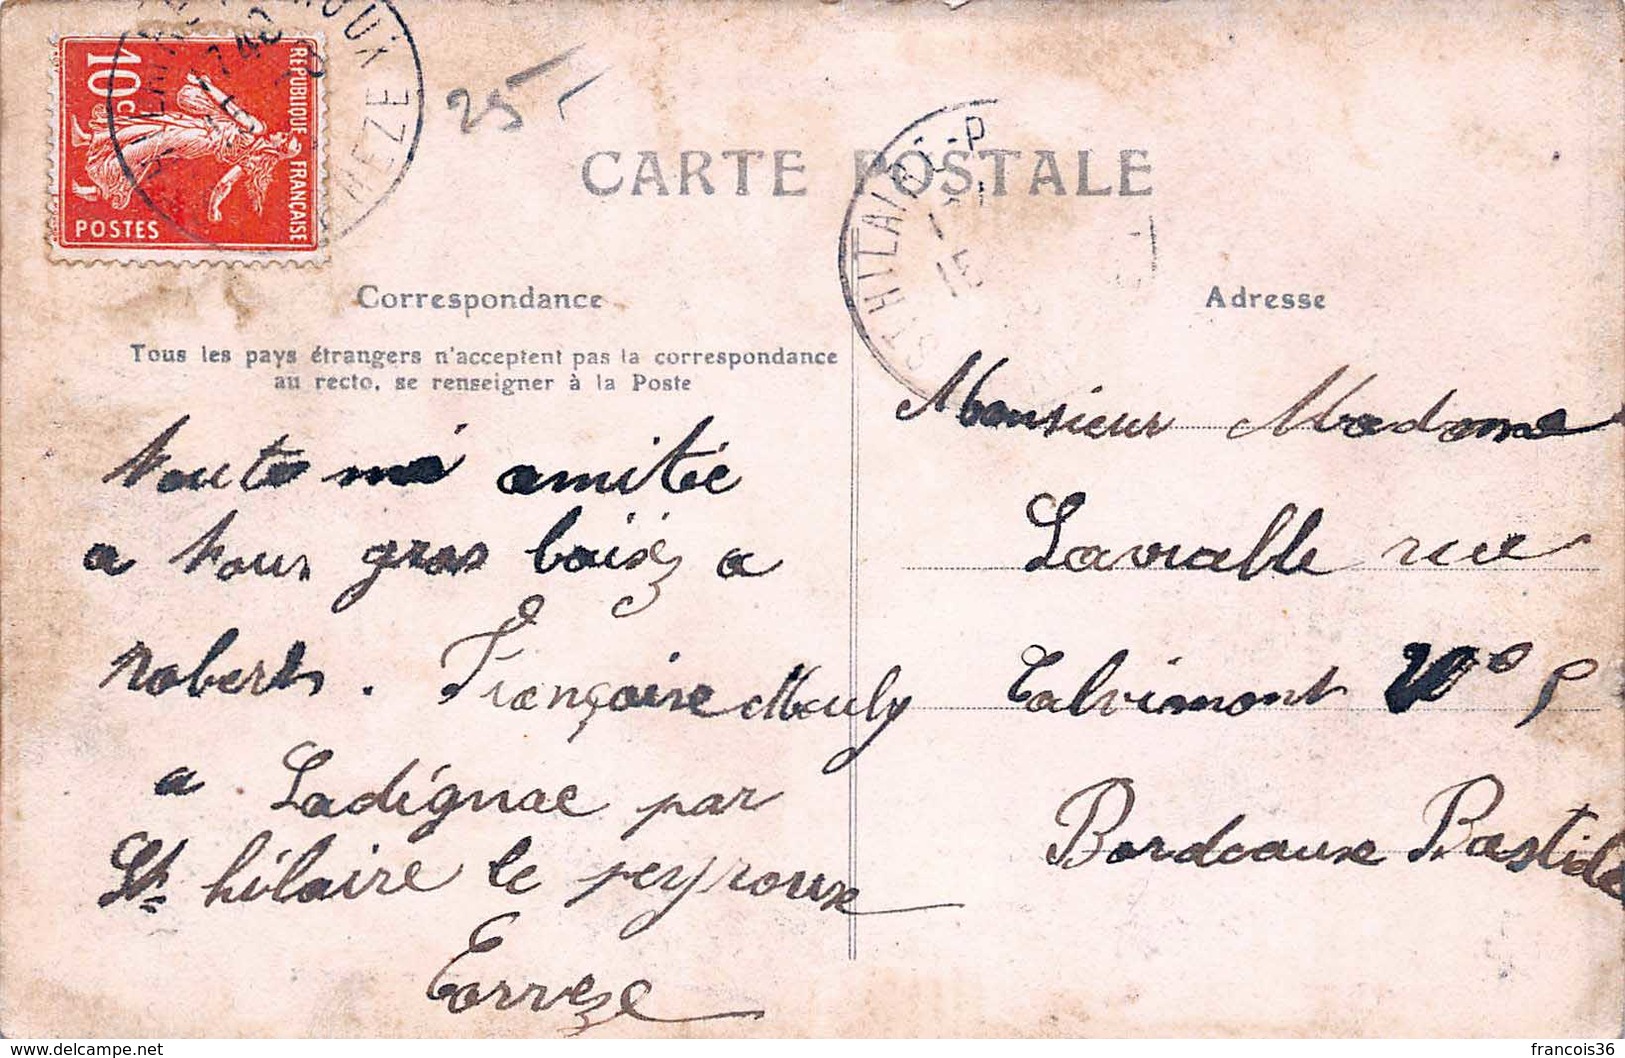 10c
REPUBLIQUE FRANÇAISE
POSTES
25-
CARTE POSTALE
ST HILAIRE-P
15
Correspondance
Adresse
Tous les pays étrangers n'acceptent pas la correspondance
au recto, se renseigner à la Poste
toute ma amitié
a tous gros baisez a
roberts. Françoise
a Ladignac par
St hilaire le peyroux
Correze
Monsieur Madame
Lavialle rue
Talvimont
Bordeaux Bastide
francois36
www.delcampe.net